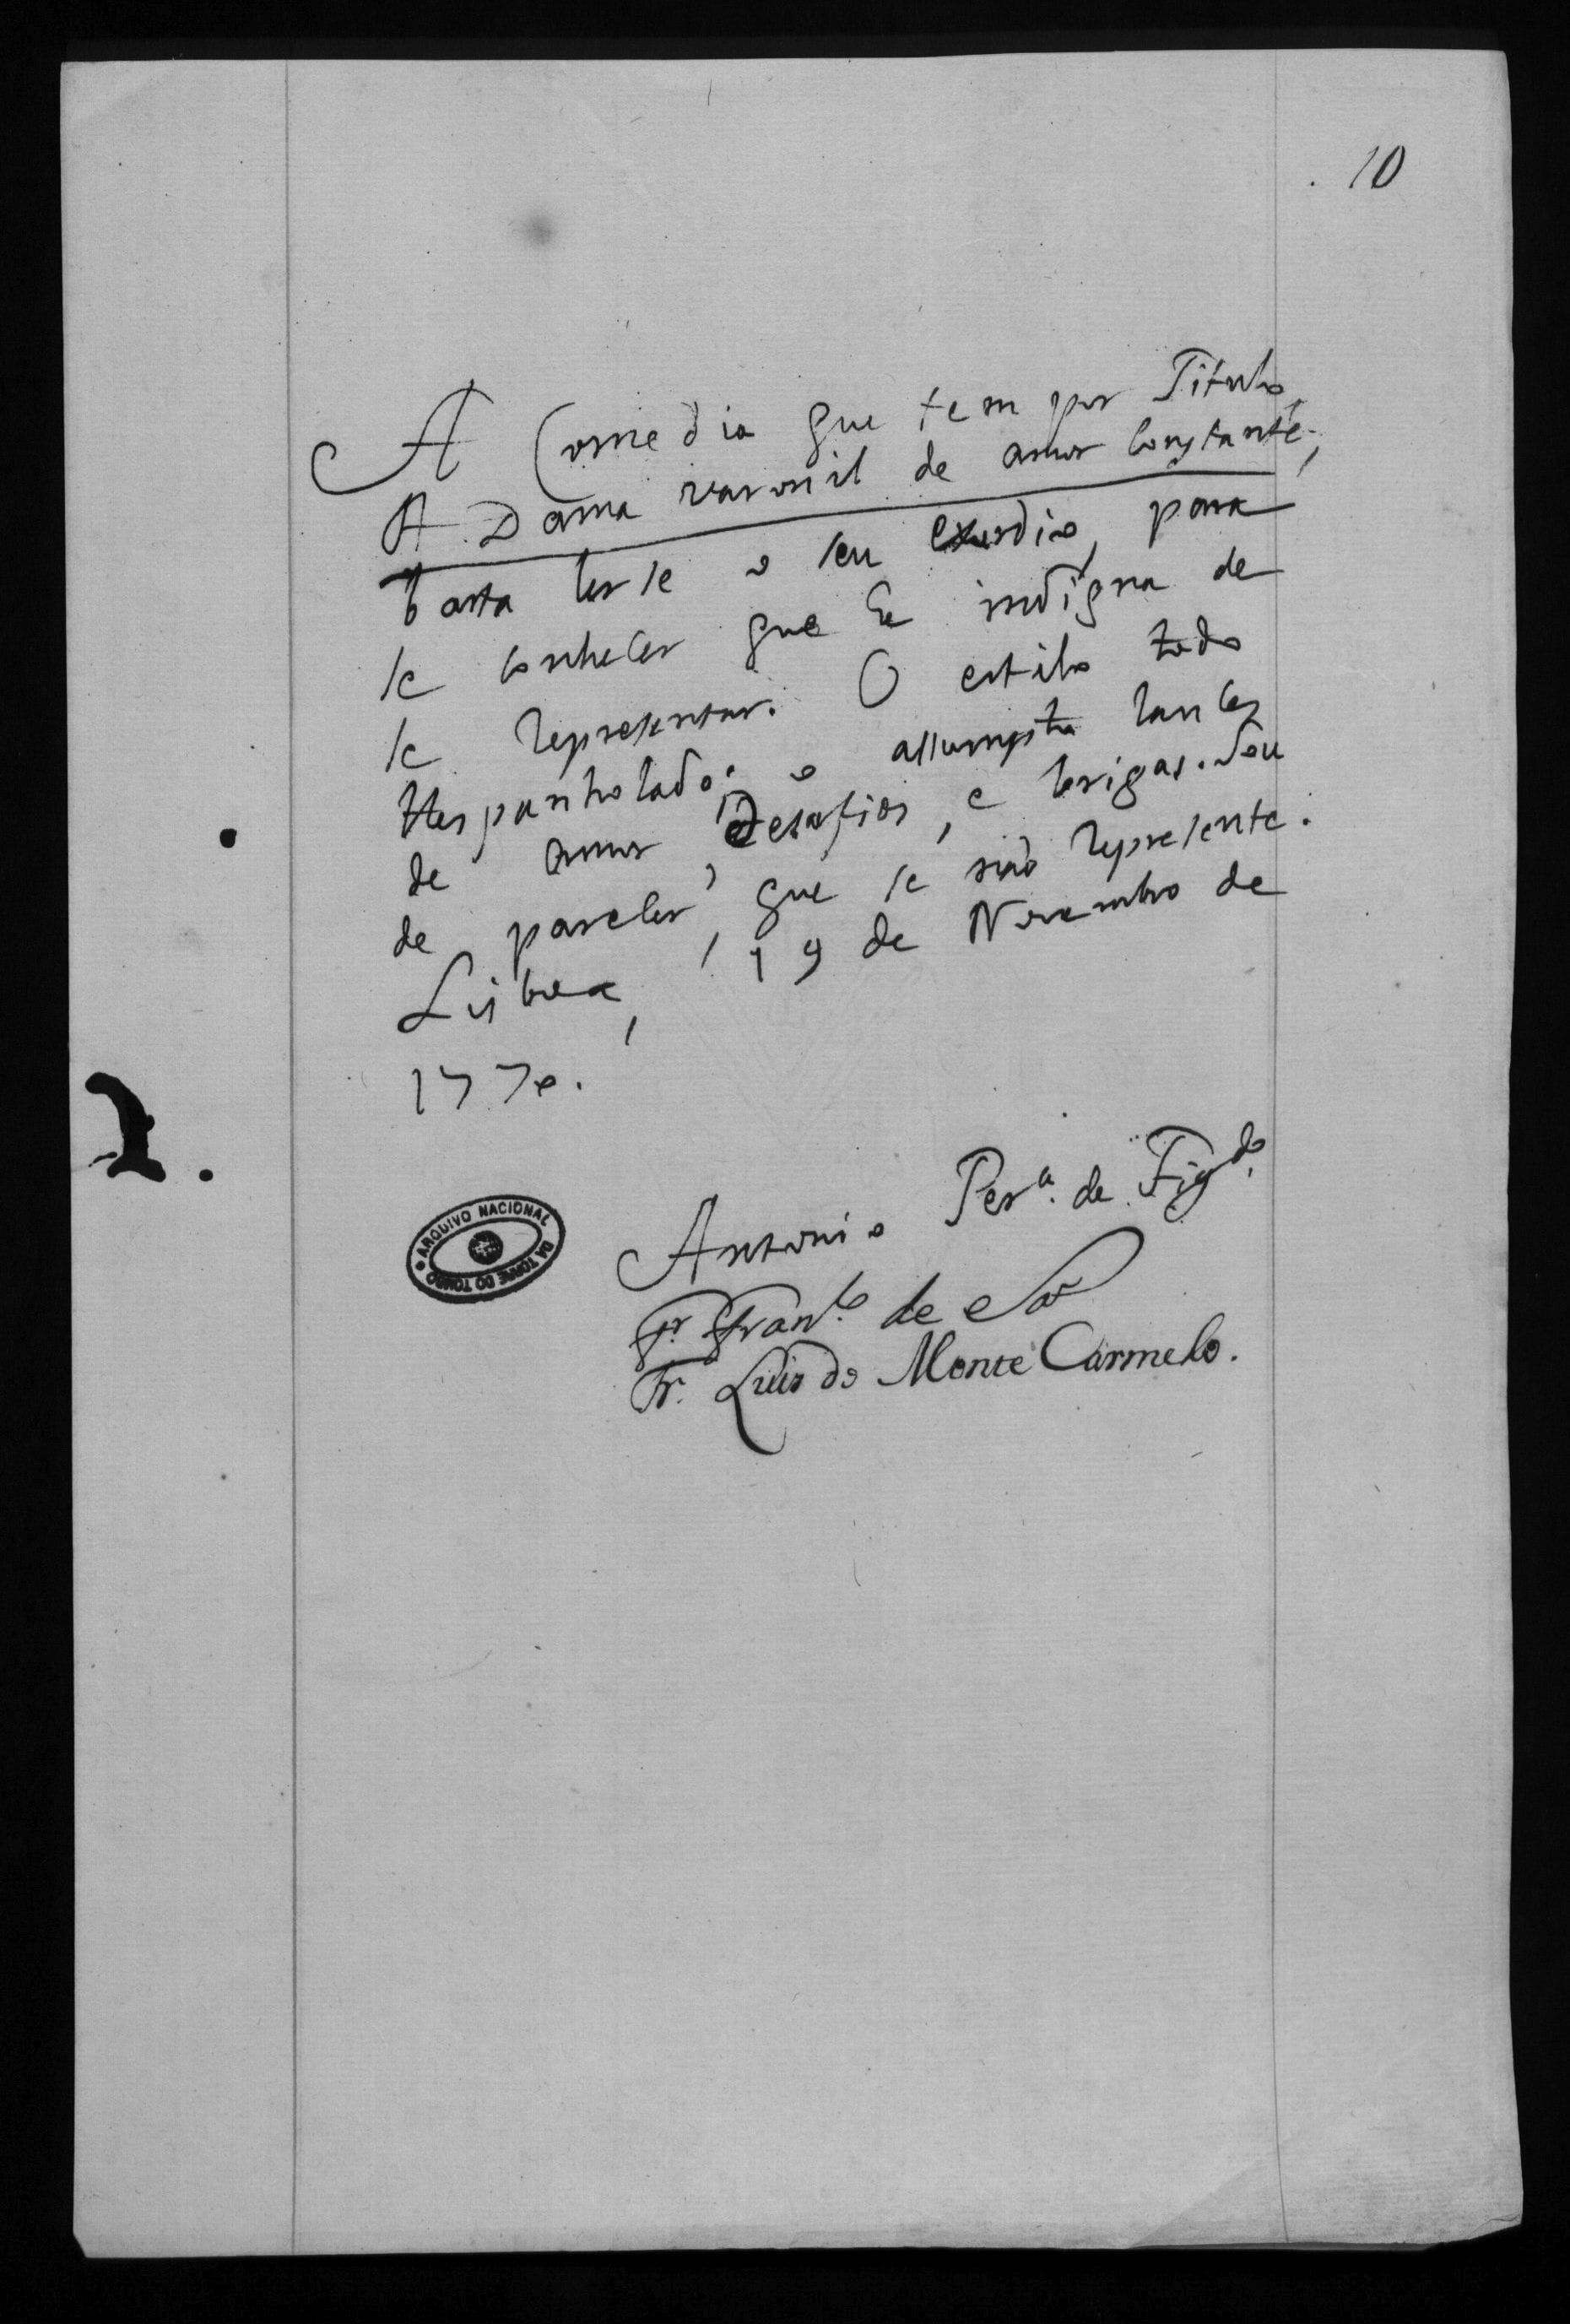 10
A Comedia que tem por Titulo,
A Dama varonil de amor constante;
basta lerse o seu exordio, para
se conhecer que he indigna de
se representar. O estilo todo
Hespanholado: o assumpto lances
de amor, desafios, e brigas. Sou
de parecer, que se não represente.
Lisboa, 19 de Novembro de
1770.
2.
Antonio Per.ª de Fig.do
ARQUIVO NACIONAL
DA TORRE DO TOMBO
Fr. Fran.co de Sá
Fr. Luis do Monte Carmelo.